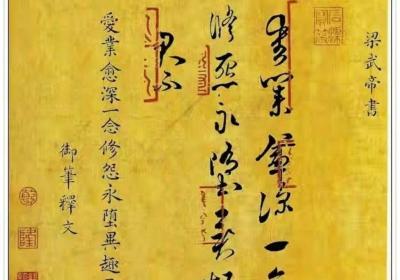 梁武帝書
愛業愈深一念
修怨永墮異趣
君不
愛業愈深一念修怨永墮異趣
御筆釋文